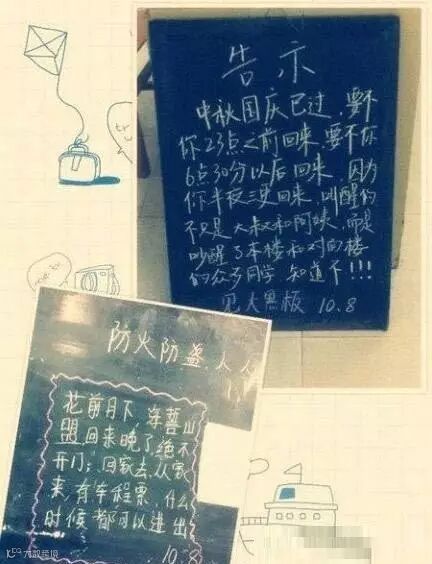 告示
中秋国庆已过,要不
你23点之前回来,要不你
6点30分以后回来,因为
你半夜三更回来,叫醒的
不只是大叔和阿姨,而是
吵醒了本楼和对面楼
的众多同学 知道不!!!
见大黑板 10.8
防火防盗,人人
花前月下,海誓山
盟,回来晚了绝不
开门;回家去,从家
来,有车程票,什么
时候都可以进出
10.8